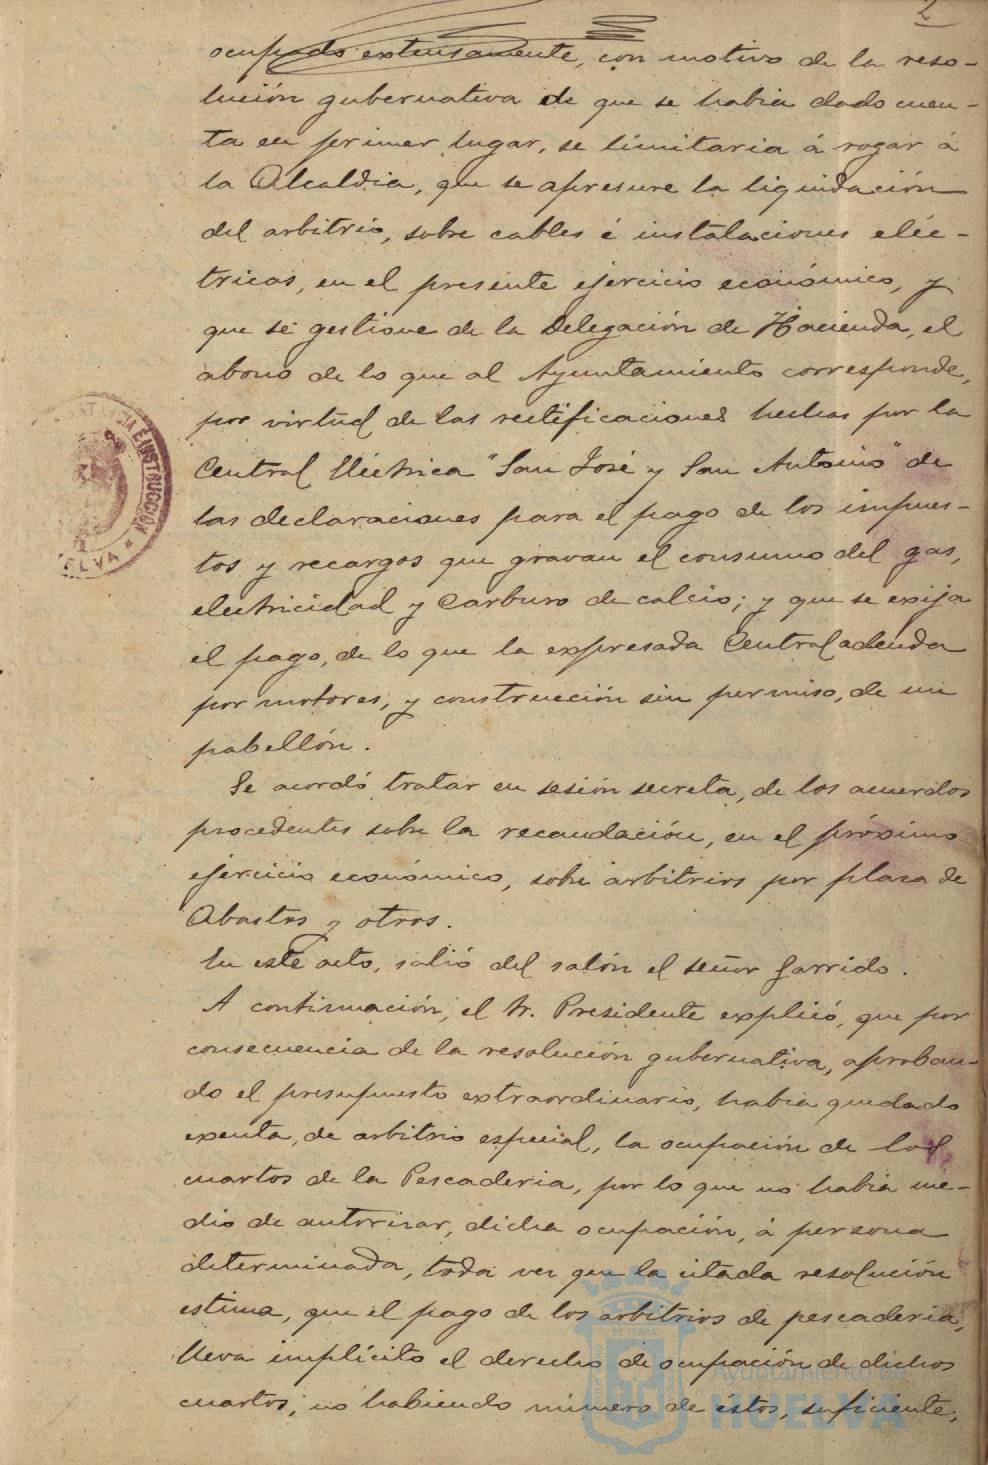 2
ocupado extensamente, con motivo de la reso-
lución gubernativa de que se habia dado cuen-
ta en primer lugar, se limitaria á rogar á
la Alcaldia, que se apresure la liquidación
del arbitrio, sobre cables é instalaciones eléc-
tricas, en el presente ejercicio económico, y
que se gestione de la Delegación de Hacienda, el
abono de lo que al Ayuntamiento corresponde,
por virtud de las rectificaciones hechas por la
Central Eléctrica "San José y San Antonio" de
las declaraciones para el pago de los impues-
tos y recargos que gravan el consumo del gas,
electricidad y Carburo de calcio; y que se exija
el pago, de lo que la expresada Central adeuda
por motores, y construcción sin permiso, de un
pabellón.
Se acordó tratar en sesión secreta, de los acuerdos
procedentes sobre la recaudación, en el próximo
ejercicio económico, sobre arbitrios por plaza de
Abastos y otros.
En este acto, salió del salón el señor Garrido.
A continuación, el Sr. Presidente explicó, que por
consecuencia de la resolución gubernativa, aproban-
do el presupuesto extraordinario, habia quedado
exenta, de arbitrio especial, la ocupación de los
cuartos de la Pescaderia, por lo que no habia me-
dio de autorizar, dicha ocupación, á persona
determinada, toda vez que la citada resolución
estima, que el pago de los arbitrios de pescaderia,
lleva implícito el derecho de ocupación de dichos
cuartos; no habiendo número de éstos, suficiente,
É INSTRUCCIÓN
ELVA
Ayuntamiento de
HUELVA